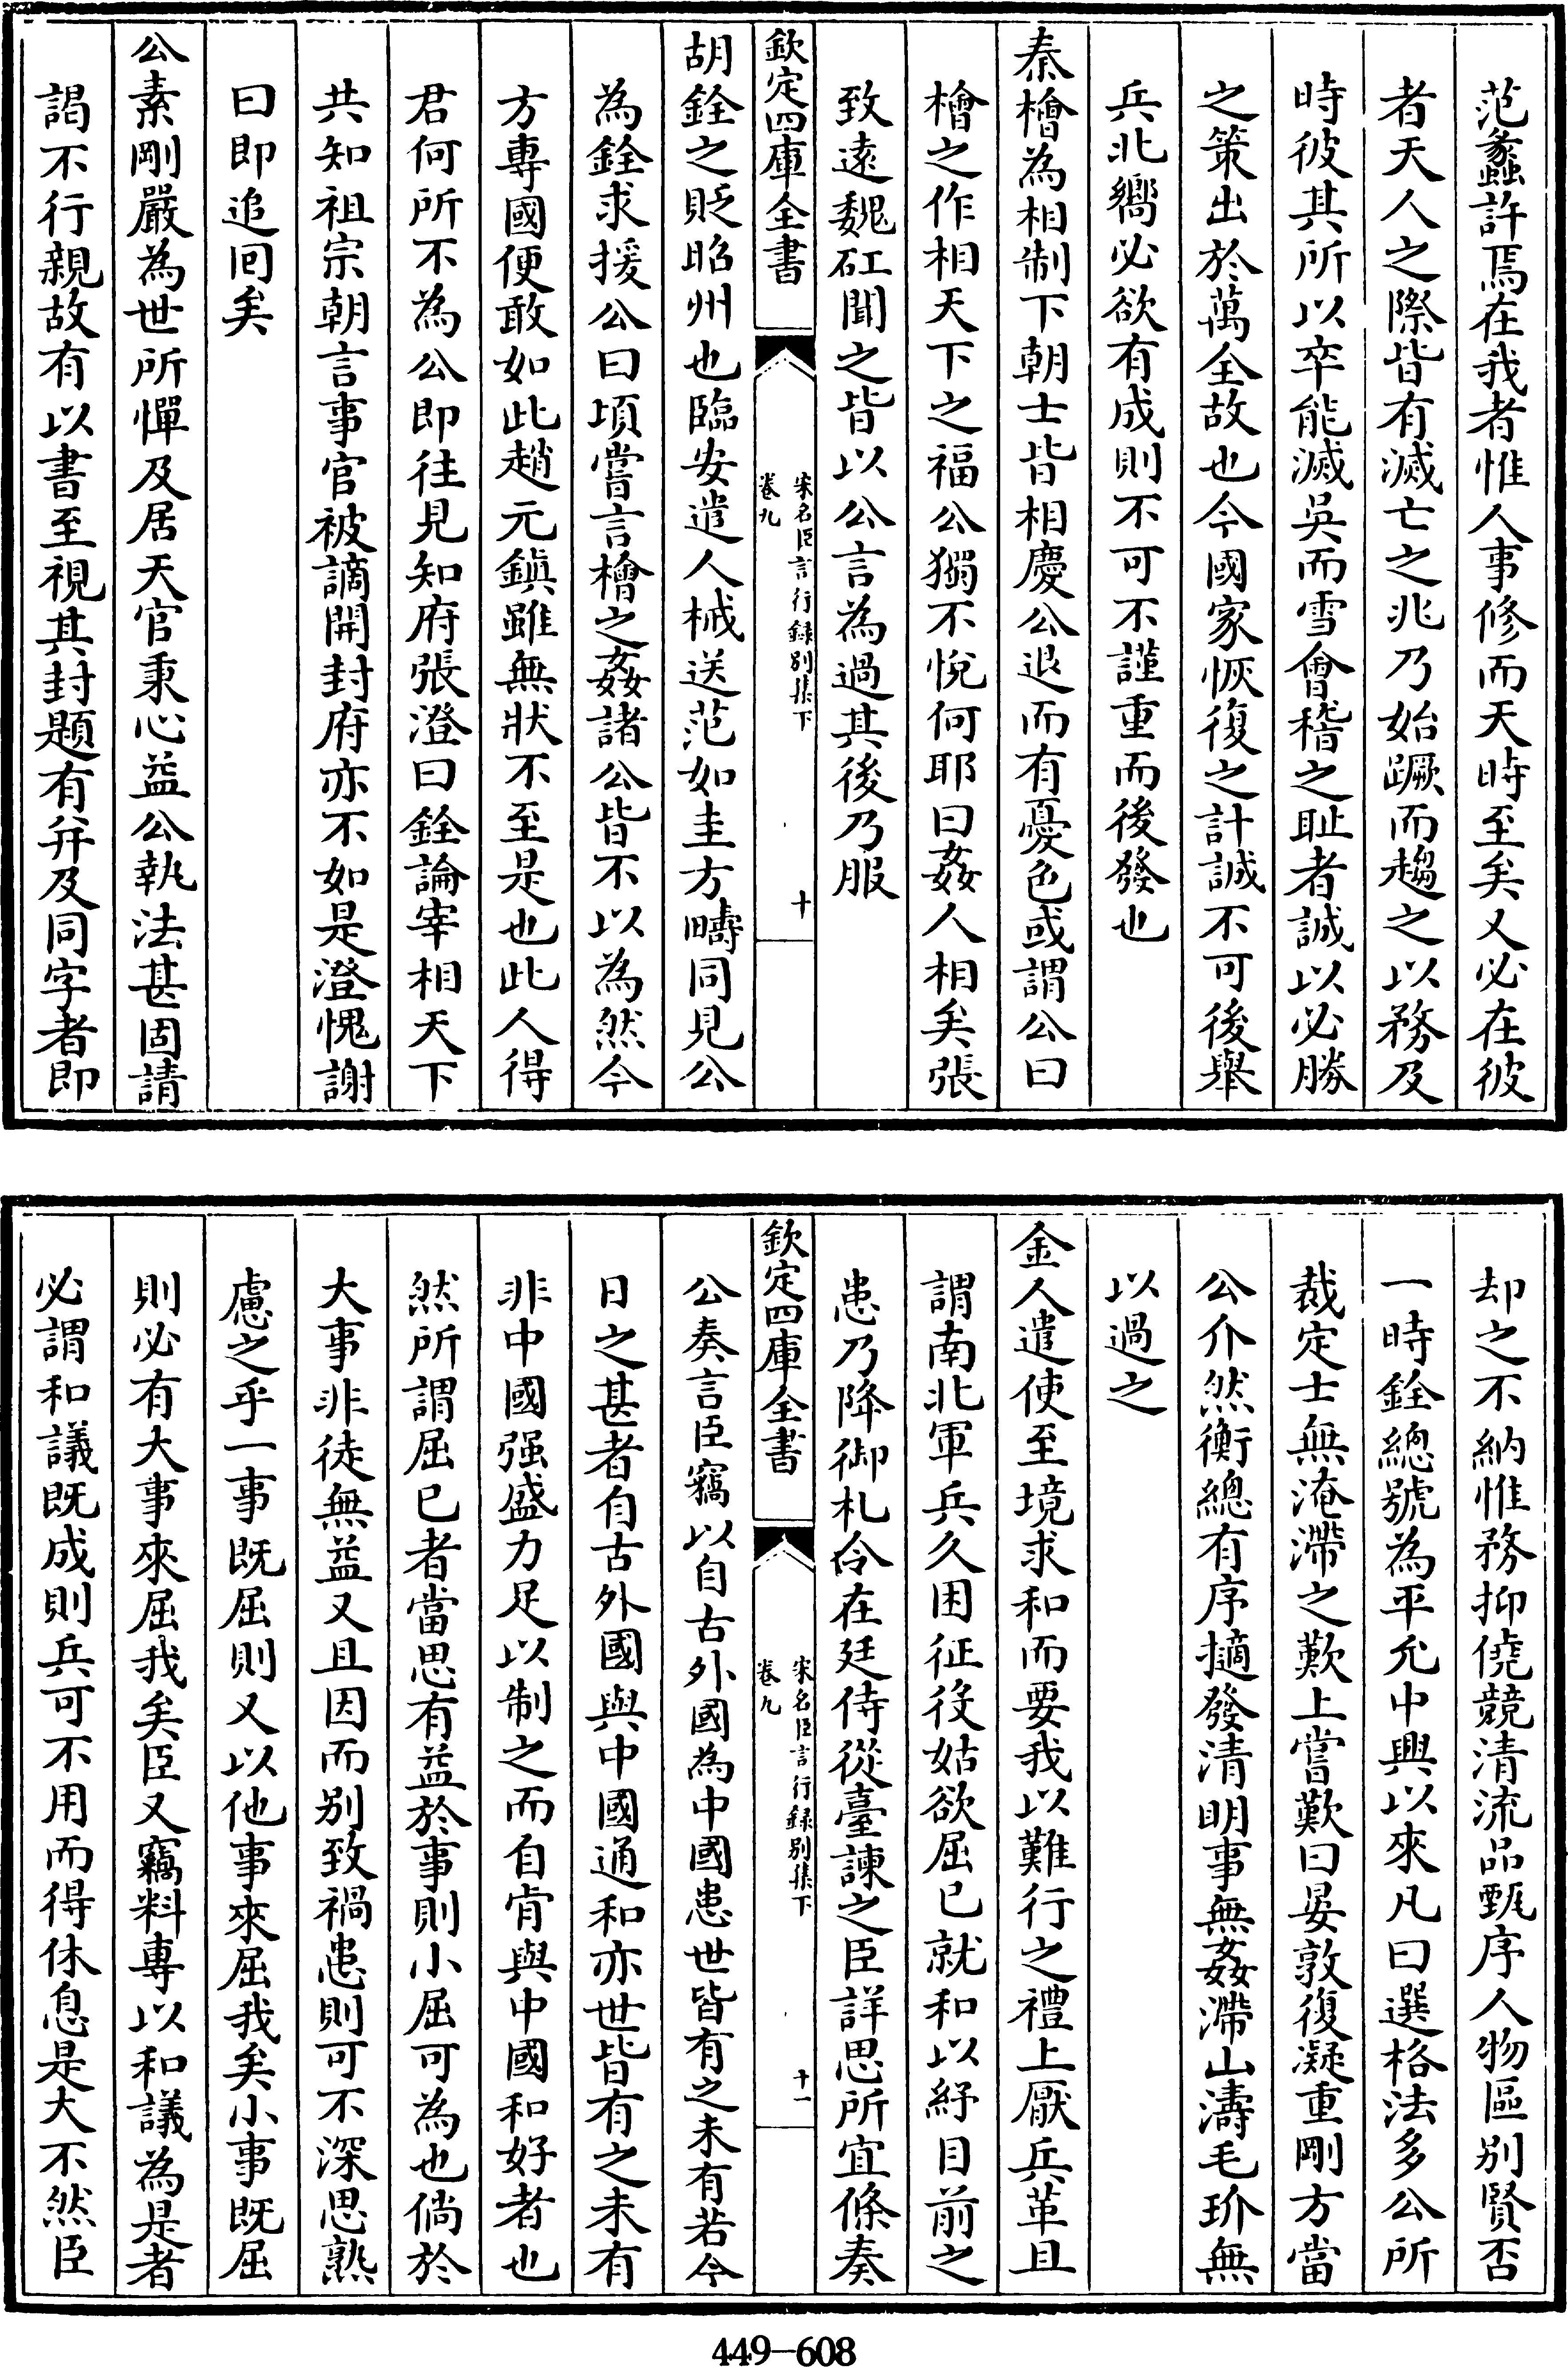 范蠡許焉在我者惟人事修而天時至矣又必在彼
者天人之際皆有滅亡之兆乃始蹶而趨之以務及
時彼其所以卒能滅吳而雪會稽之耻者誠以必勝
之策出於萬全故也今國家恢復之計誠不可後舉
兵北嚮必欲有成則不可不謹重而後發也
秦檜為相制下朝士皆相慶公退而有憂色或謂公曰
檜之作相天下之福公獨不悅何耶曰姦人相矣張
致遠魏矼聞之皆以公言為過其後乃服
欽定四庫全書
宋名臣言行録别集下
卷九
十
胡銓之貶昭州也臨安遣人械送范如圭方疇同見公
為銓求援公曰頃嘗言檜之姦諸公皆不以為然今
方專國便敢如此趙元鎮雖無狀不至是也此人得
君何所不為公即往見知府張澄曰銓論宰相天下
共知祖宗朝言事官被謫開封府亦不如是澄愧謝
曰即追囘矣
公素剛嚴為世所憚及居天官秉心益公執法甚固請
謁不行親故有以書至視其封題有弁及同字者即
却之不納惟務抑僥競清流品甄序人物區别賢否
一時銓總號為平允中興以來凡曰選格法多公所
裁定士無淹滯之歎上嘗歎曰晏敦復凝重剛方當
公介然衡總有序擿發清明事無姦滯山濤毛玠無
以過之
金人遣使至境求和而要我以難行之禮上厭兵革且
謂南北軍兵久困征役姑欲屈已就和以紓目前之
患乃降御札令在廷侍從臺諫之臣詳思所宜條奏
欽定四庫全書
宋名臣言行録别集下
卷九
十一
公奏言臣竊以自古外國為中國患世皆有之未有若今
日之甚者自古外國與中國通和亦世皆有之未有
非中國强盛力足以制之而自肯與中國和好者也
然所謂屈已者當思有益於事則小屈可為也倘於
大事非徒無益又且因而别致禍患則可不深思熟
慮之乎一事既屈則又以他事來屈我矣小事既屈
則必有大事來屈我矣臣又竊料專以和議為是者
必謂和議既成則兵可不用而得休息是大不然臣
449-608